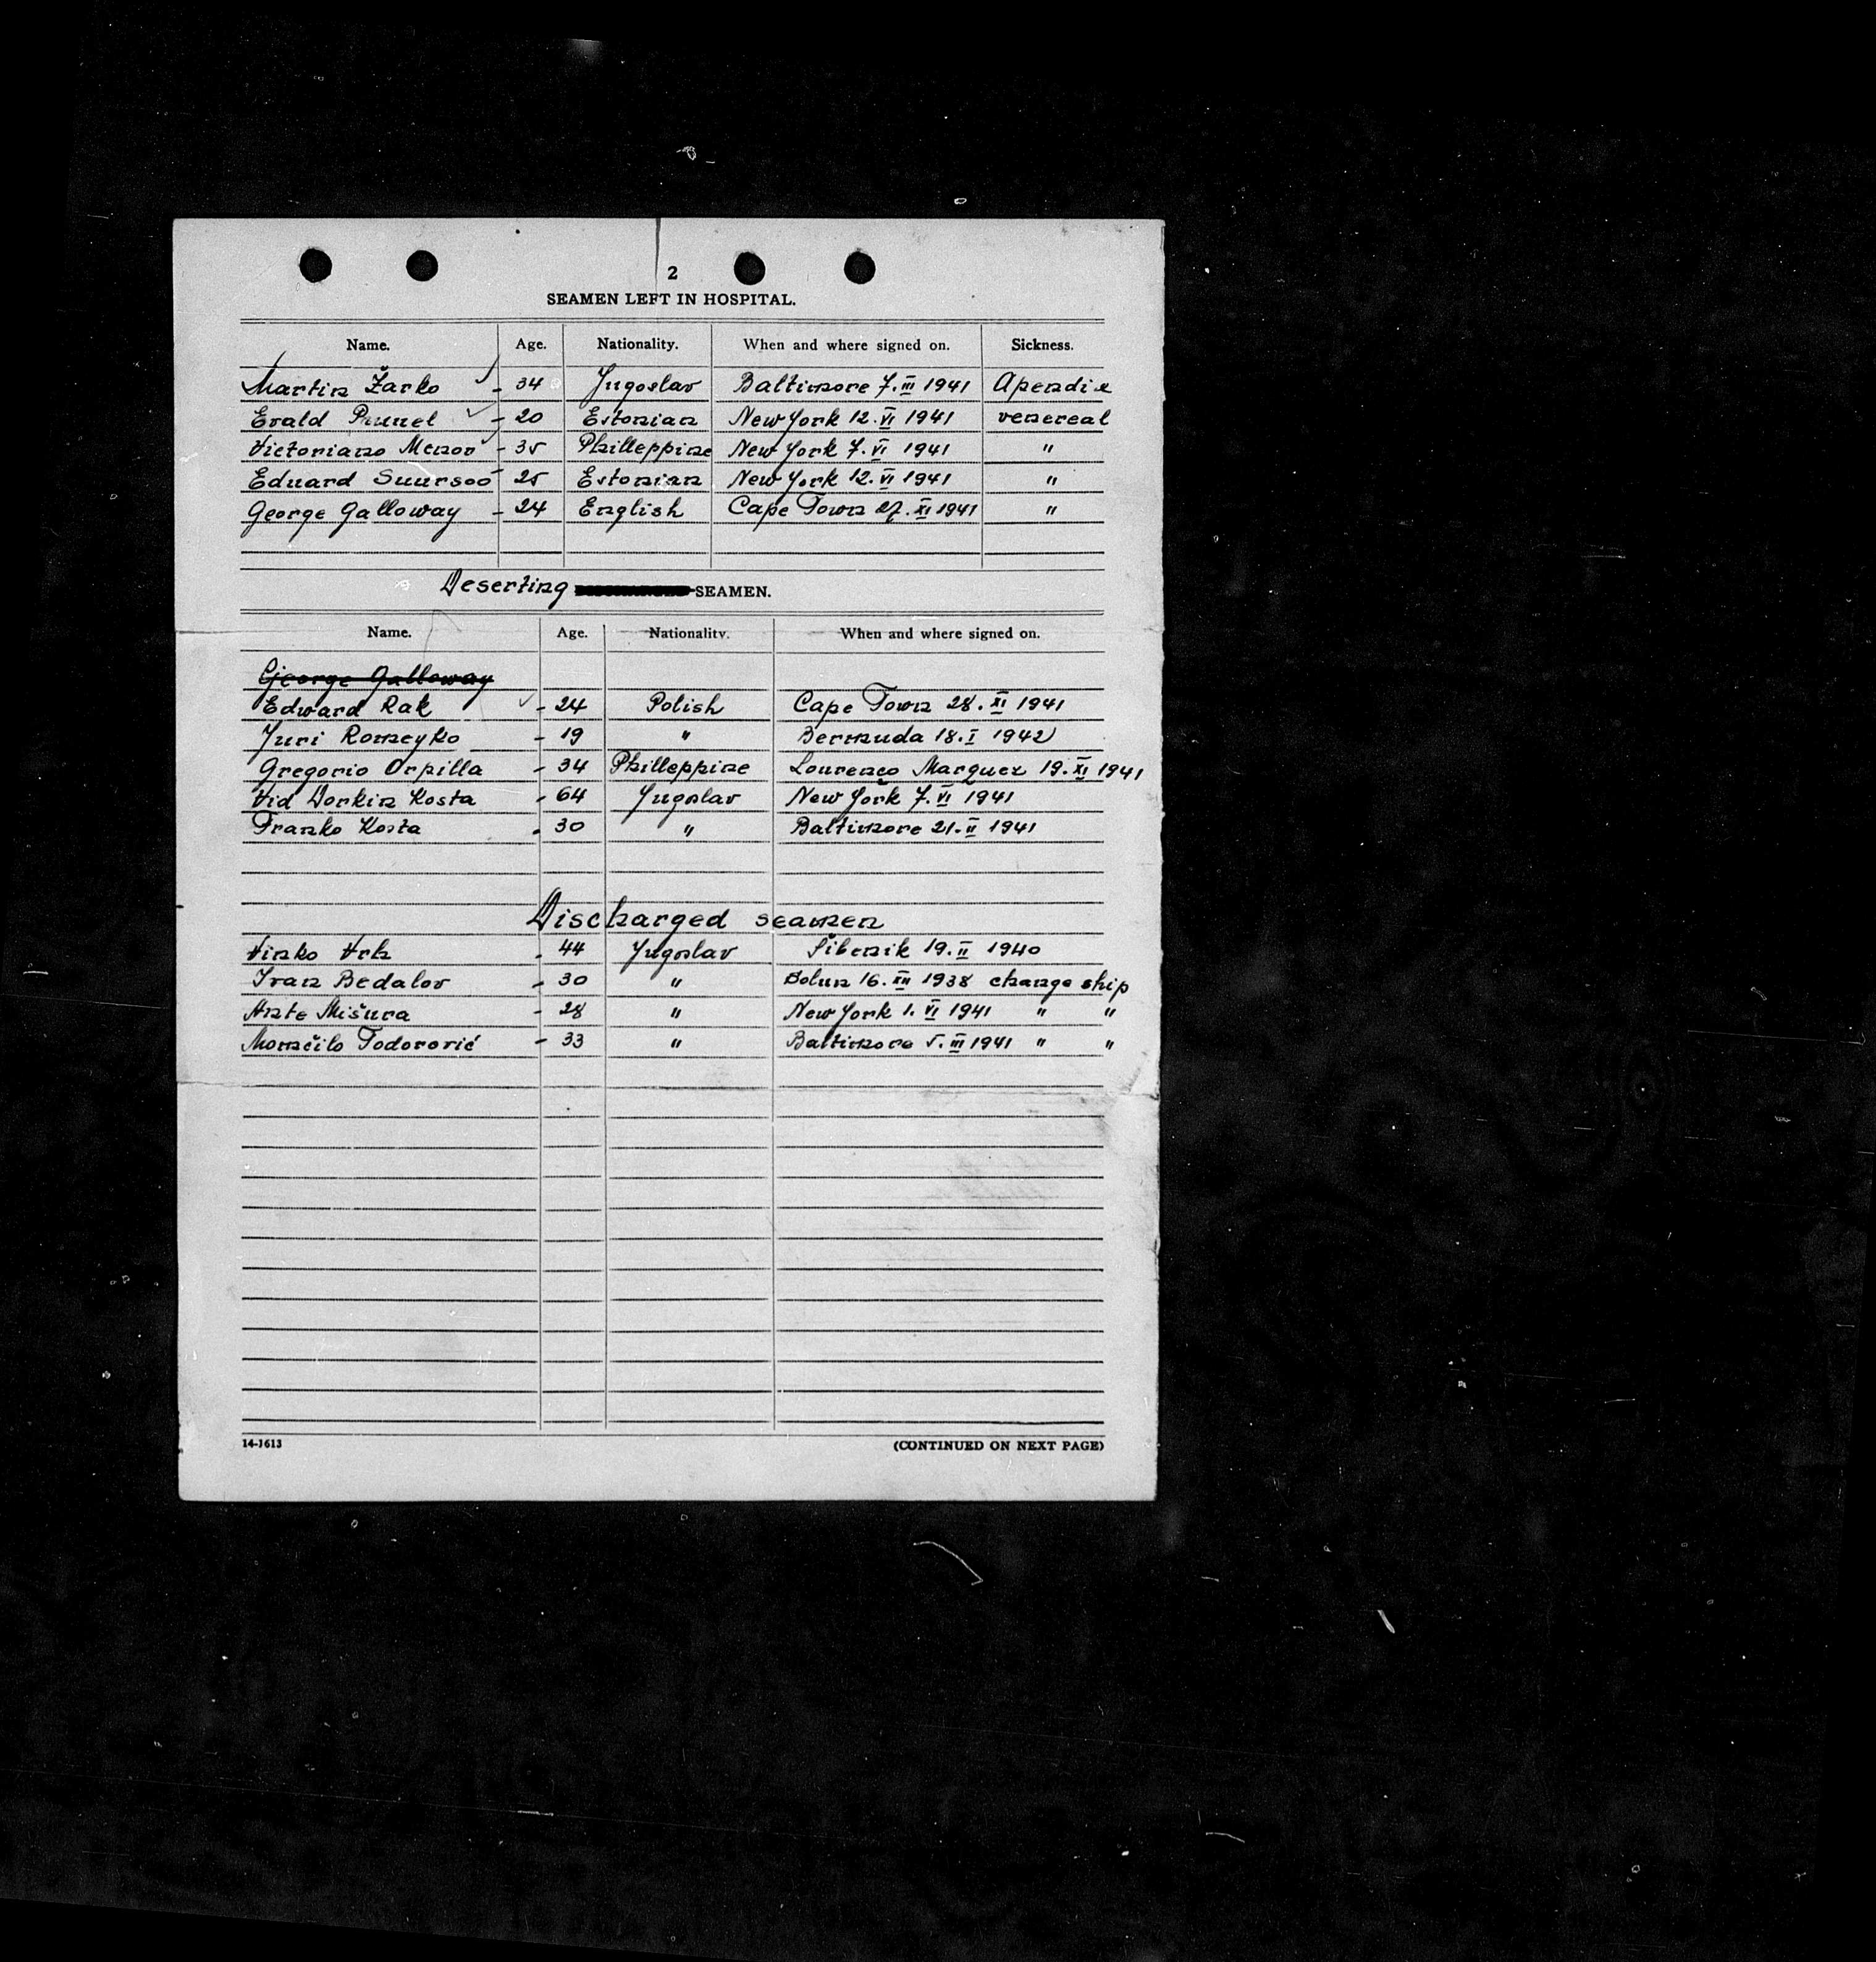 2
SEAMEN LEFT IN HOSPITAL.
Name. Age. Nationality. When and where signed on. Sickness.
Martin Žarko - 34 Jugoslav Baltimore 7.III 1941 Apendix
Evald Prunel - 20 Estonian New York 12.VI 1941 venereal
Victoriano Menor - 35 Philleppine New York 7.VI 1941 "
Eduard Suursoo - 25 Estonian New York 12.VI 1941 "
George Galloway - 24 English Cape Town 27.XI 1941 "
Deserting SEAMEN.
Name. Age. Nationality. When and where signed on.
George Galloway
Edward Rak - 24 Polish Cape Town 28.XI 1941
Juri Romeyko - 19 " Bermuda 18.I 1942
Gregorio Orpilla - 34 Philleppine Lourenço Marquez 19.XI 1941
Vid Dorkin Kosta - 64 Jugoslav New York 7.VI 1941
Franko Kosta - 30 " Baltimore 21.II 1941
Discharged seamen
Vinko Vrh - 44 Jugoslav Šibenik 19.II 1940
Ivan Bedalov - 30 " 16.XII 1938 change ship
Ante Mišura - 28 " New York 1.VI 1941 " "
Momčilo Todorović - 33 " Baltimore 5.III 1941 " "
14-1613 (CONTINUED ON NEXT PAGE)